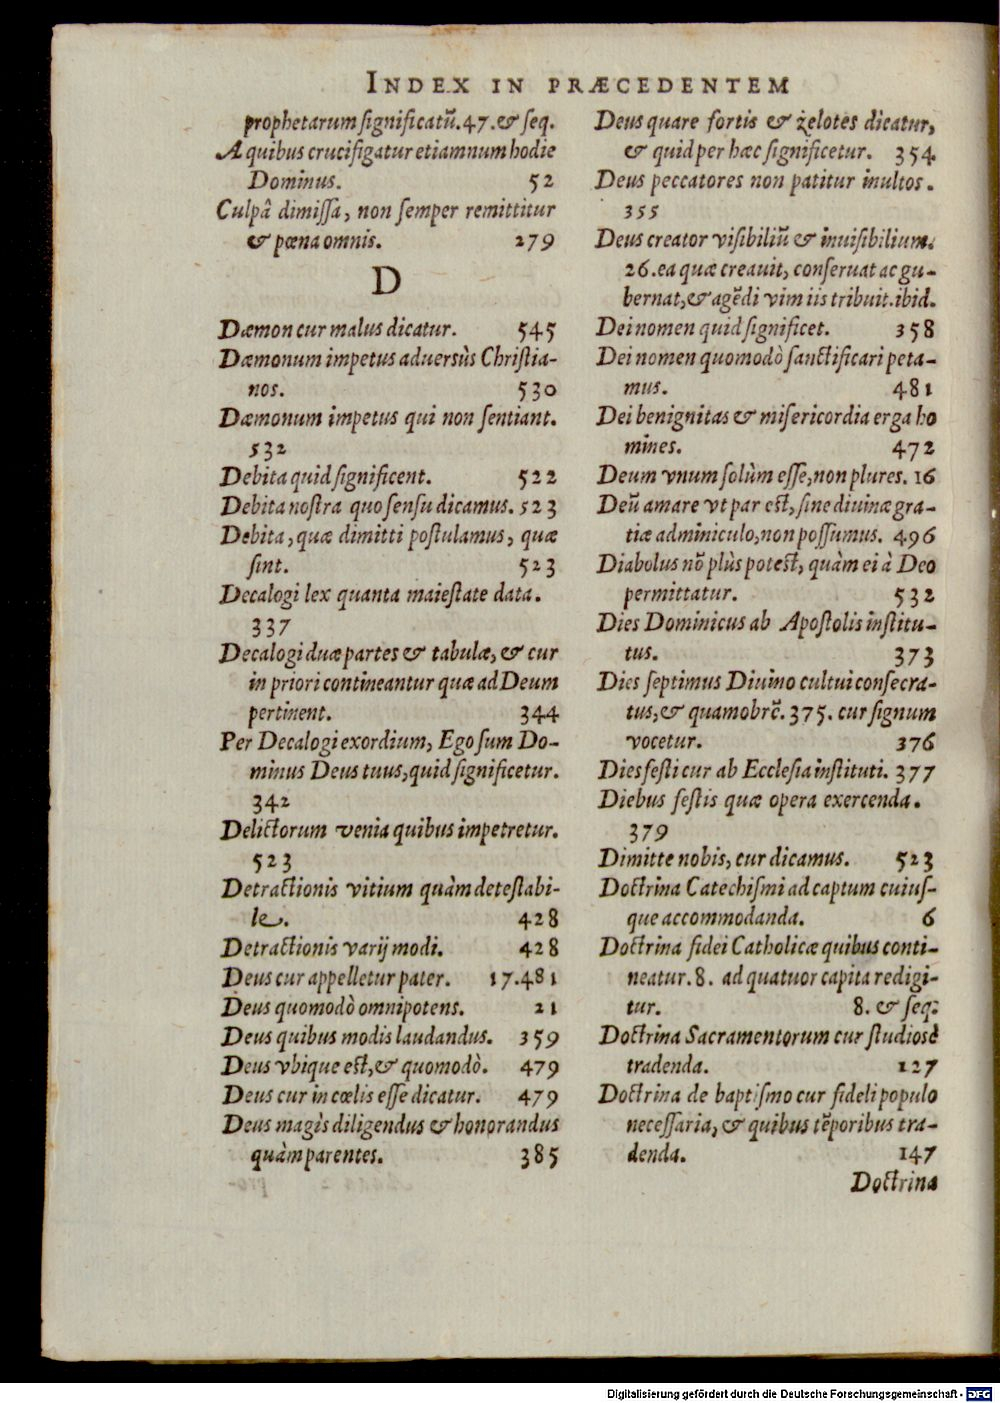 INDEX IN PRÆCEDENTEM
prophetarum ſignificatũ. 47. & ſeq.
A quibus crucifigatur etiamnum hodie
Dominus. 52
Culpâ dimiſſa, non ſemper remittitur
& pœna omnis. 279
D
Dæmon cur malus dicatur. 545
Dæmonum impetus aduersùs Chriſtia-
nos. 530
Dæmonum impetus qui non ſentiant.
532
Debita quid ſignificent. 522
Debita noſtra quo ſenſu dicamus. 523
Debita, quæ dimitti poſtulamus, quæ
ſint. 523
Decalogi lex quanta maieſtate data.
337
Decalogi duæ partes & tabulæ, & cur
in priori contineantur quæ ad Deum
pertinent. 344
Per Decalogi exordium, Ego ſum Do-
minus Deus tuus, quid ſignificetur.
342
Delictorum venia quibus impetretur.
523
Detractionis vitium quàm deteſtabi-
le. 428
Detractionis varij modi. 428
Deus cur appelletur pater. 17. 481
Deus quomodò omnipotens. 21
Deus quibus modis laudandus. 359
Deus vbique eſt, & quomodò. 479
Deus cur in cœlis eſſe dicatur. 479
Deus magis diligendus & honorandus
quàm parentes. 385
Deus quare fortis & zelotes dicatur,
& quid per hæc ſignificetur. 354.
Deus peccatores non patitur inultos.
355
Deus creator viſibiliũ & inuiſibilium.
26. ea quæ creauit, conſeruat ac gu-
bernat, & agẽdi vim iis tribuit. ibid.
Dei nomen quid ſignificet. 358
Dei nomen quomodò ſanctificari peta-
mus. 481
Dei benignitas & miſericordia erga ho
mines. 472
Deum vnum ſolùm eſſe, non plures. 16
Deũ amare vt par eſt, ſine diuinæ gra-
tiæ adminiculo, non poſſumus. 496
Diabolus nõ plùs poteſt, quàm ei à Deo
permittatur. 532
Dies Dominicus ab Apoſtolis inſtitu-
tus. 373
Dies ſeptimus Diuino cultui conſecra-
tus, & quamobrẽ. 375. cur ſignum
vocetur. 376
Dies feſti cur ab Eccleſia inſtituti. 377
Diebus feſtis quæ opera exercenda.
379
Dimitte nobis, cur dicamus. 523
Doctrina Catechiſmi ad captum cuiuſ-
que accommodanda. 6
Doctrina fidei Catholicæ quibus conti-
neatur. 8. ad quatuor capita redigi-
tur. 8. & ſeq;
Doctrina Sacramentorum cur ſtudiosè
tradenda. 127
Doctrina de baptiſmo cur fideli populo
neceſſaria, & quibus tẽporibus tra-
denda. 147
Doctrina
Digitalisierung gefördert durch die Deutsche Forschungsgemeinschaft - DFG